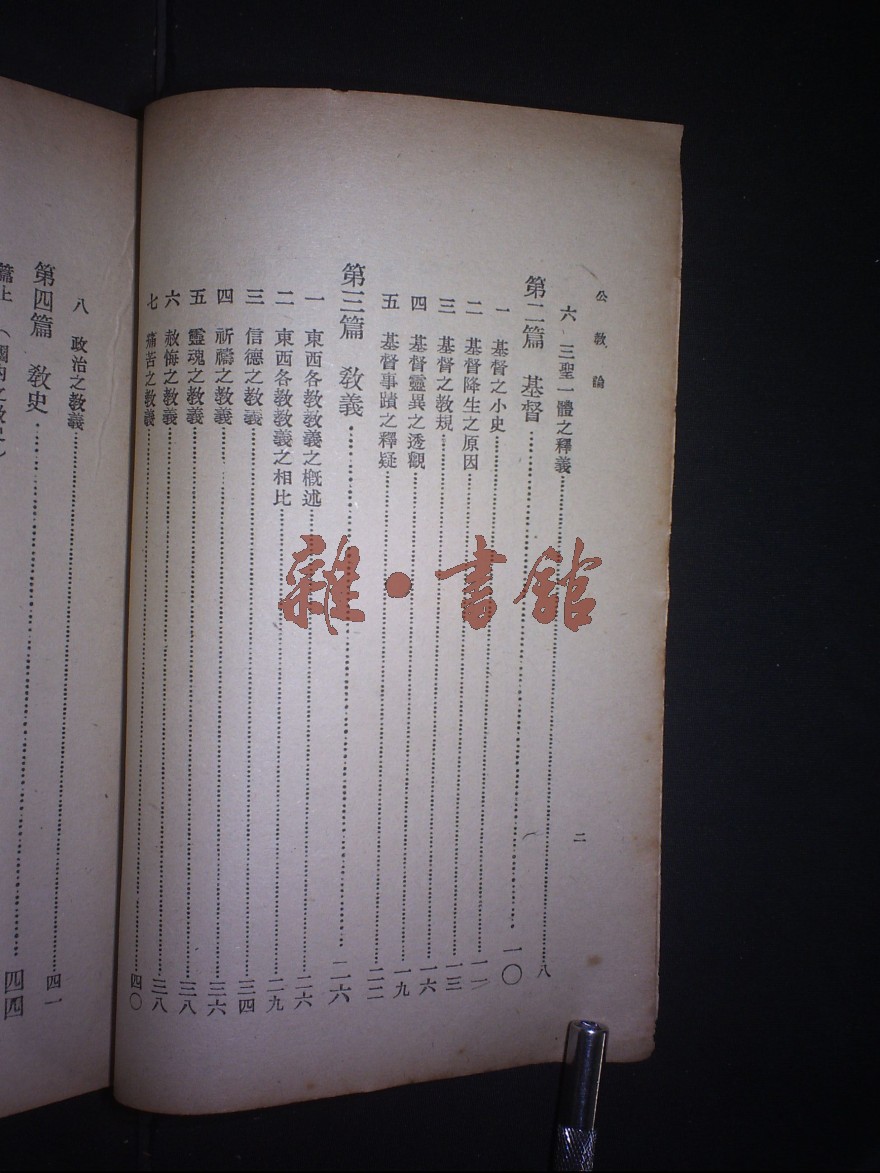 公教論
二
六 三聖一體之釋義……八
第二篇 基督……一〇
一 基督之小史……一一
二 基督降生之原因……一三
三 基督之教規……一六
四 基督靈異之透觀……一九
五 基督事蹟之釋疑……二二
第三篇 教義……二六
一 東西各教教義之概述……二六
二 東西各教教義之相比……二九
三 信德之教義……三四
四 祈禱之教義……三六
五 靈魂之教義……三八
六 赦悔之教義……三八
七 痛苦之教義……四〇
八 政治之教義……四一
第四篇 教史……四四
雜·書館